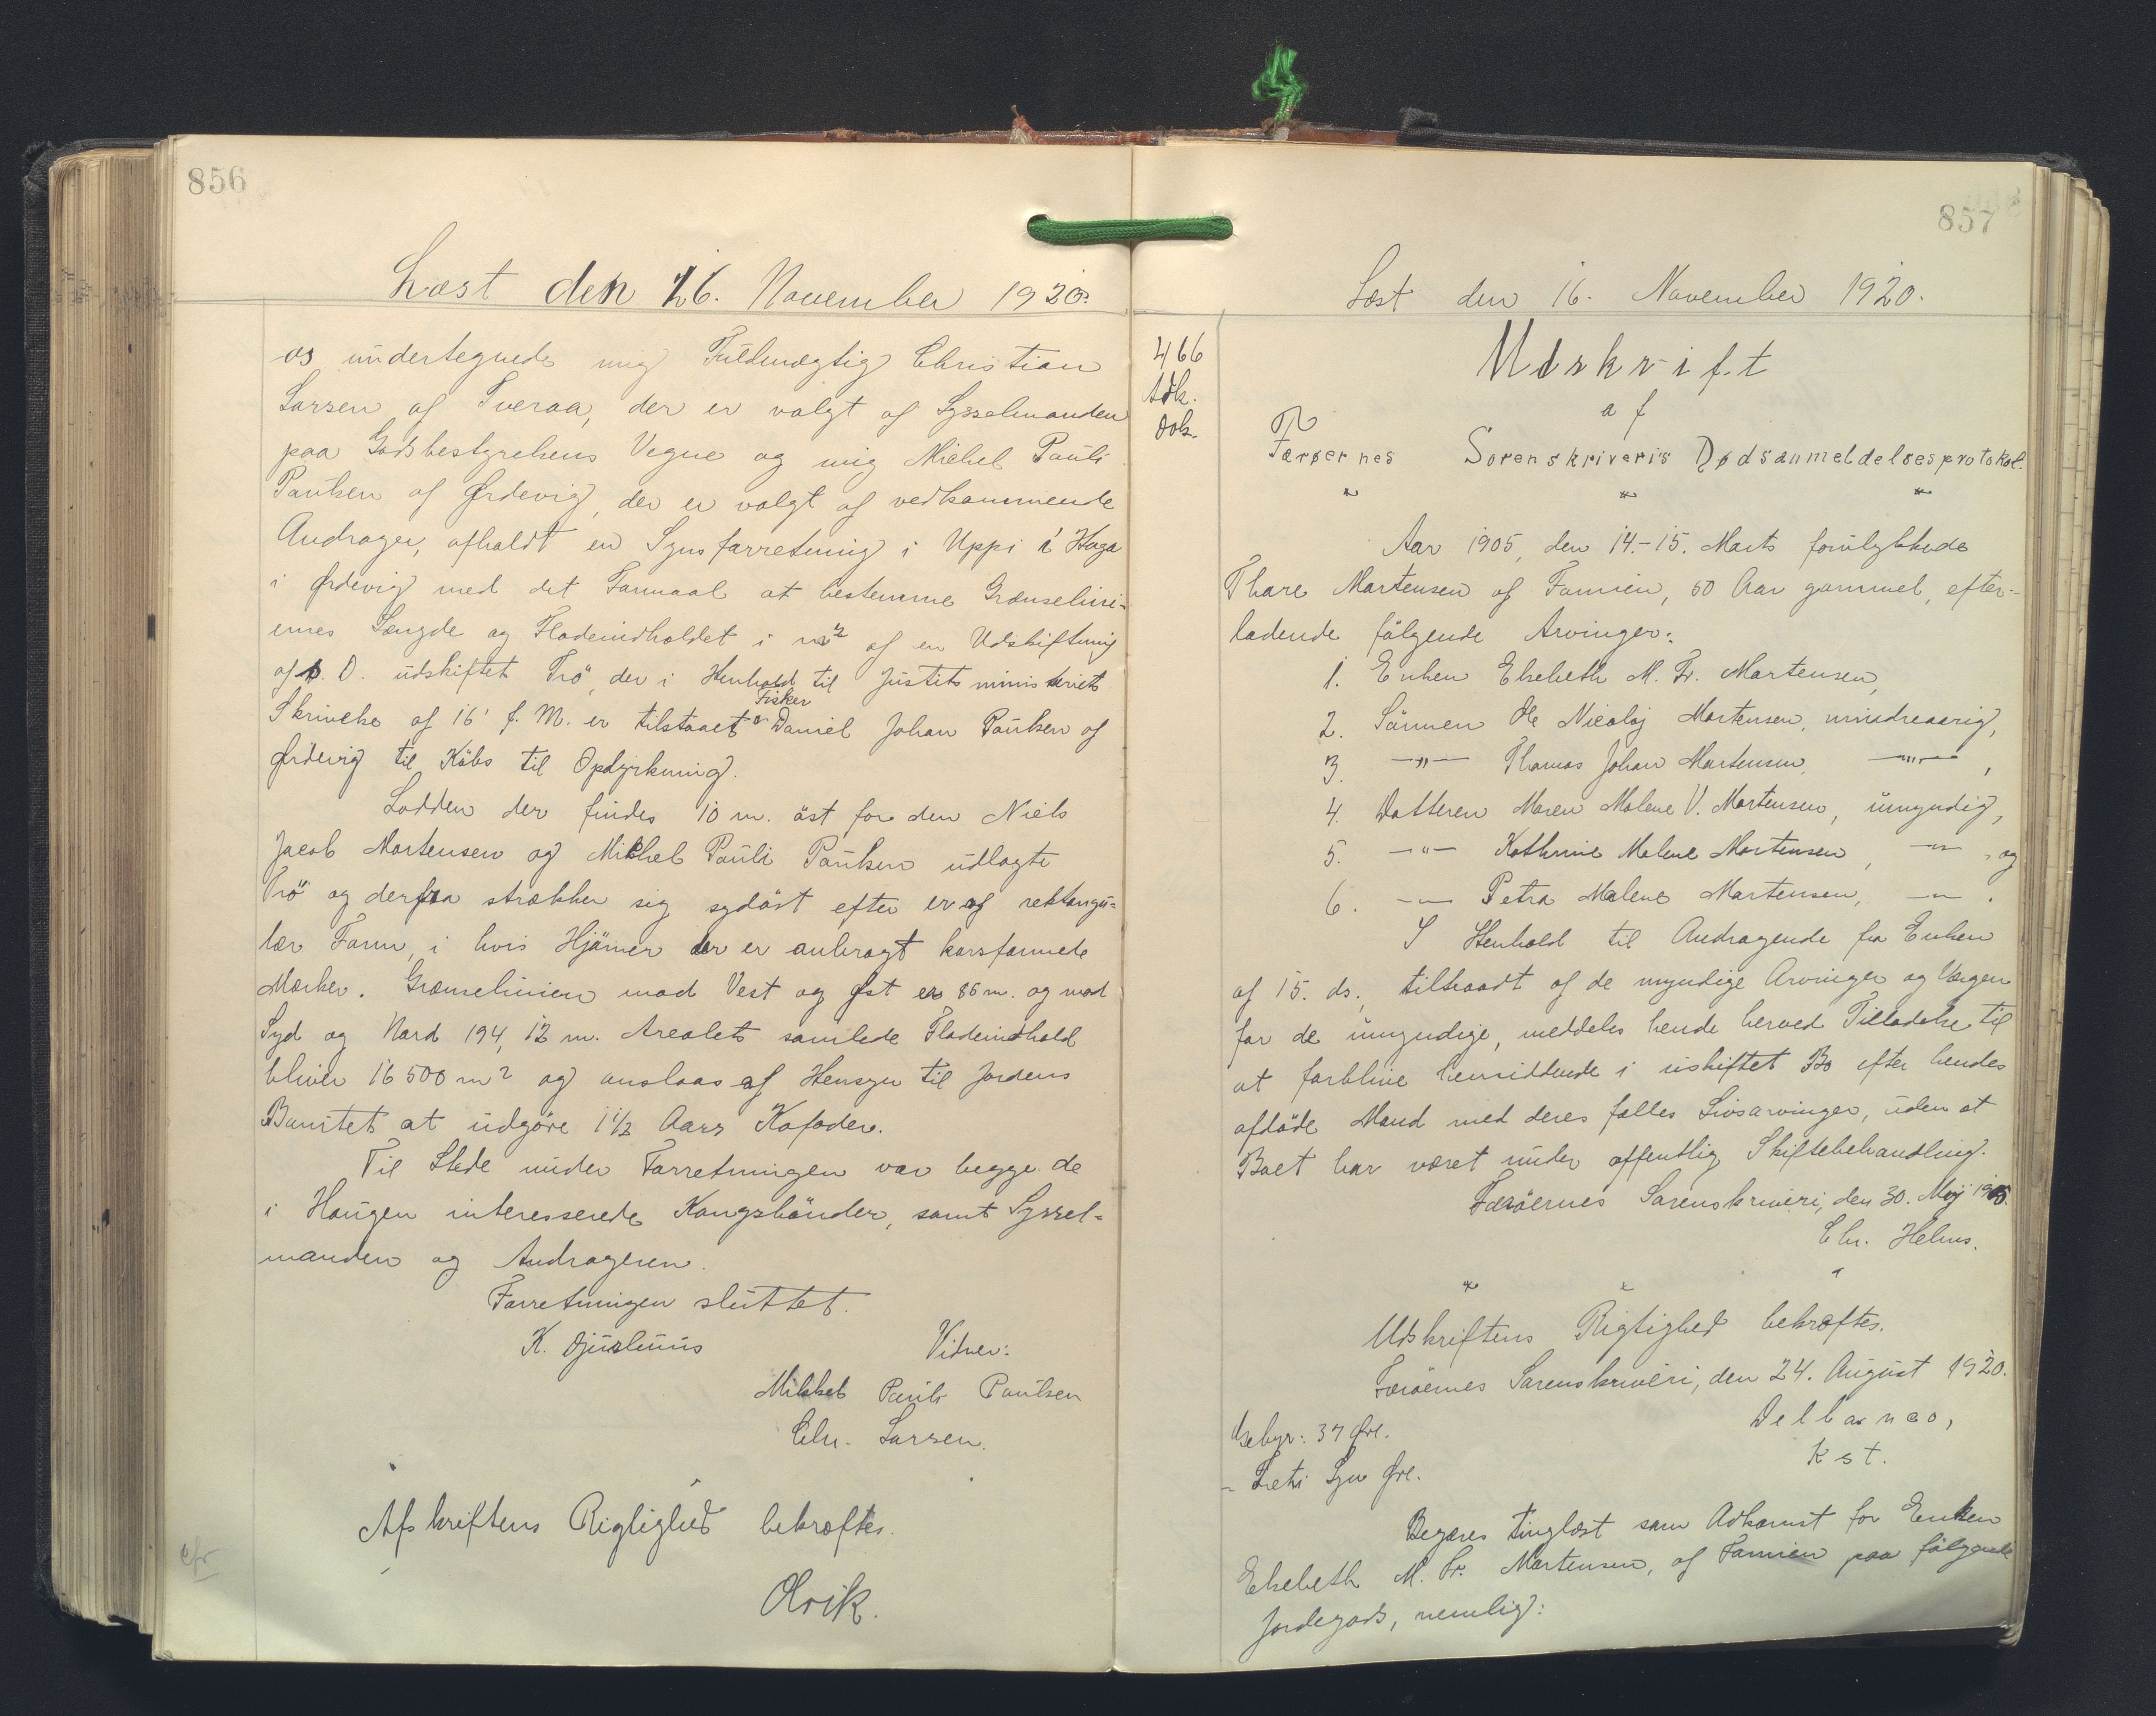 856
Læst den 16. November 1920.
os undertegnede mig Fuldmægtig Christian
Larsen af Tveraa, der er valgt af Sysselmanden
paa Godsbestyrelsens Vegne og mig Michel Pauli
Paulsen af Ørdevig, der er valgt af vedkommende
Andrager, afholdt en Synsforretning i Uppi í Haga
i Ørdevig med det Formaal at bestemme Grænselini-
ernes Længde og Fladeindholdet i m² af en Udskiftning
af p. D. udskiftet Trö, der i Henhold til Justitsministeriets
Skrivelse af 16' f. M. er tilstaaet Fisker Daniel Johan Paulsen af
Ørdevig til Köbs til Opdyrkning.
Lodden der findes 10 m. öst for den Niels
Jacob Mortensen og Mikkel Pauli Paulsen udlagte
Trö og derfra strækker sig sydöst efter er af rektangu-
lær Form, i hvis Hjörner der er anbragt korsformede
Mærker. Grænselinien mod Vest og Øst er 85 m. og mod
Syd og Nord 194,12 m. Arealets samlede Fladeindhold
bliver 16500 m² og anslaas af Hensyn til Jordens
Bonitet at udgöre 1½ Aars Kofoder.
Til Stede under Forretningen var begge de
i Haugen interesserede Kongsbönder, samt Syssel-
manden og Andrageren.
Forretningen sluttet.
K. Djurhuus
Vidner:
Mikkel Pauli Paulsen
Chr. Larsen.
Afskriftens Rigtighed bekræftes.
cfr
Ølrik.
857
Læst den 16. November 1920.
466
Adk.
Dok.
Udskrift
af
Færøernes Sorenskriveri's Dødsanmeldelsesprotokol.
Aar 1905, den 14.-15. Marts forulykkede
Thare Mortensen af Famien, 50 Aar gammel, efter-
ladende fölgende Arvinger:
1. Enken Elsebeth M. Fr. Mortensen,
2. Sönnen Ole Nicolaj Mortensen, mindreaarig,
3. —"— Thomas Johan Mortensen, —"— ,
4. Datteren Maren Malene V. Mortensen, umyndig,
5. —"— Kathrine Malene Mortensen, —"— , og
6. —"— Petra Malene Mortensen, —"— .
I Henhold til Andragende fra Enken
af 15. ds., tiltraadt af de myndige Arvinger og Værgen
for de umyndige, meddeles hende herved Tilladelse til
at forblive hensiddende i uskiftet Bo efter hendes
afdöde Mand med deres fælles Livsarvinger, uden at
Boet har været under offentlig Skiftebehandling.
Færöernes Sorenskriveri, den 30. Maj 1905.
Chr. Helms.
Udskriftens Rigtighed bekræftes.
Færöernes Sorenskriveri, den 24. August 1920.
Dellbanco,
Kst.
Gebyr: 37 Øre.
- Treti Syv Øre.
Begæres tinglæst som Adkomst for Enken
Elsebeth M. Fr. Mortensen, af Famien paa fölgende
Jordegods, nemlig: